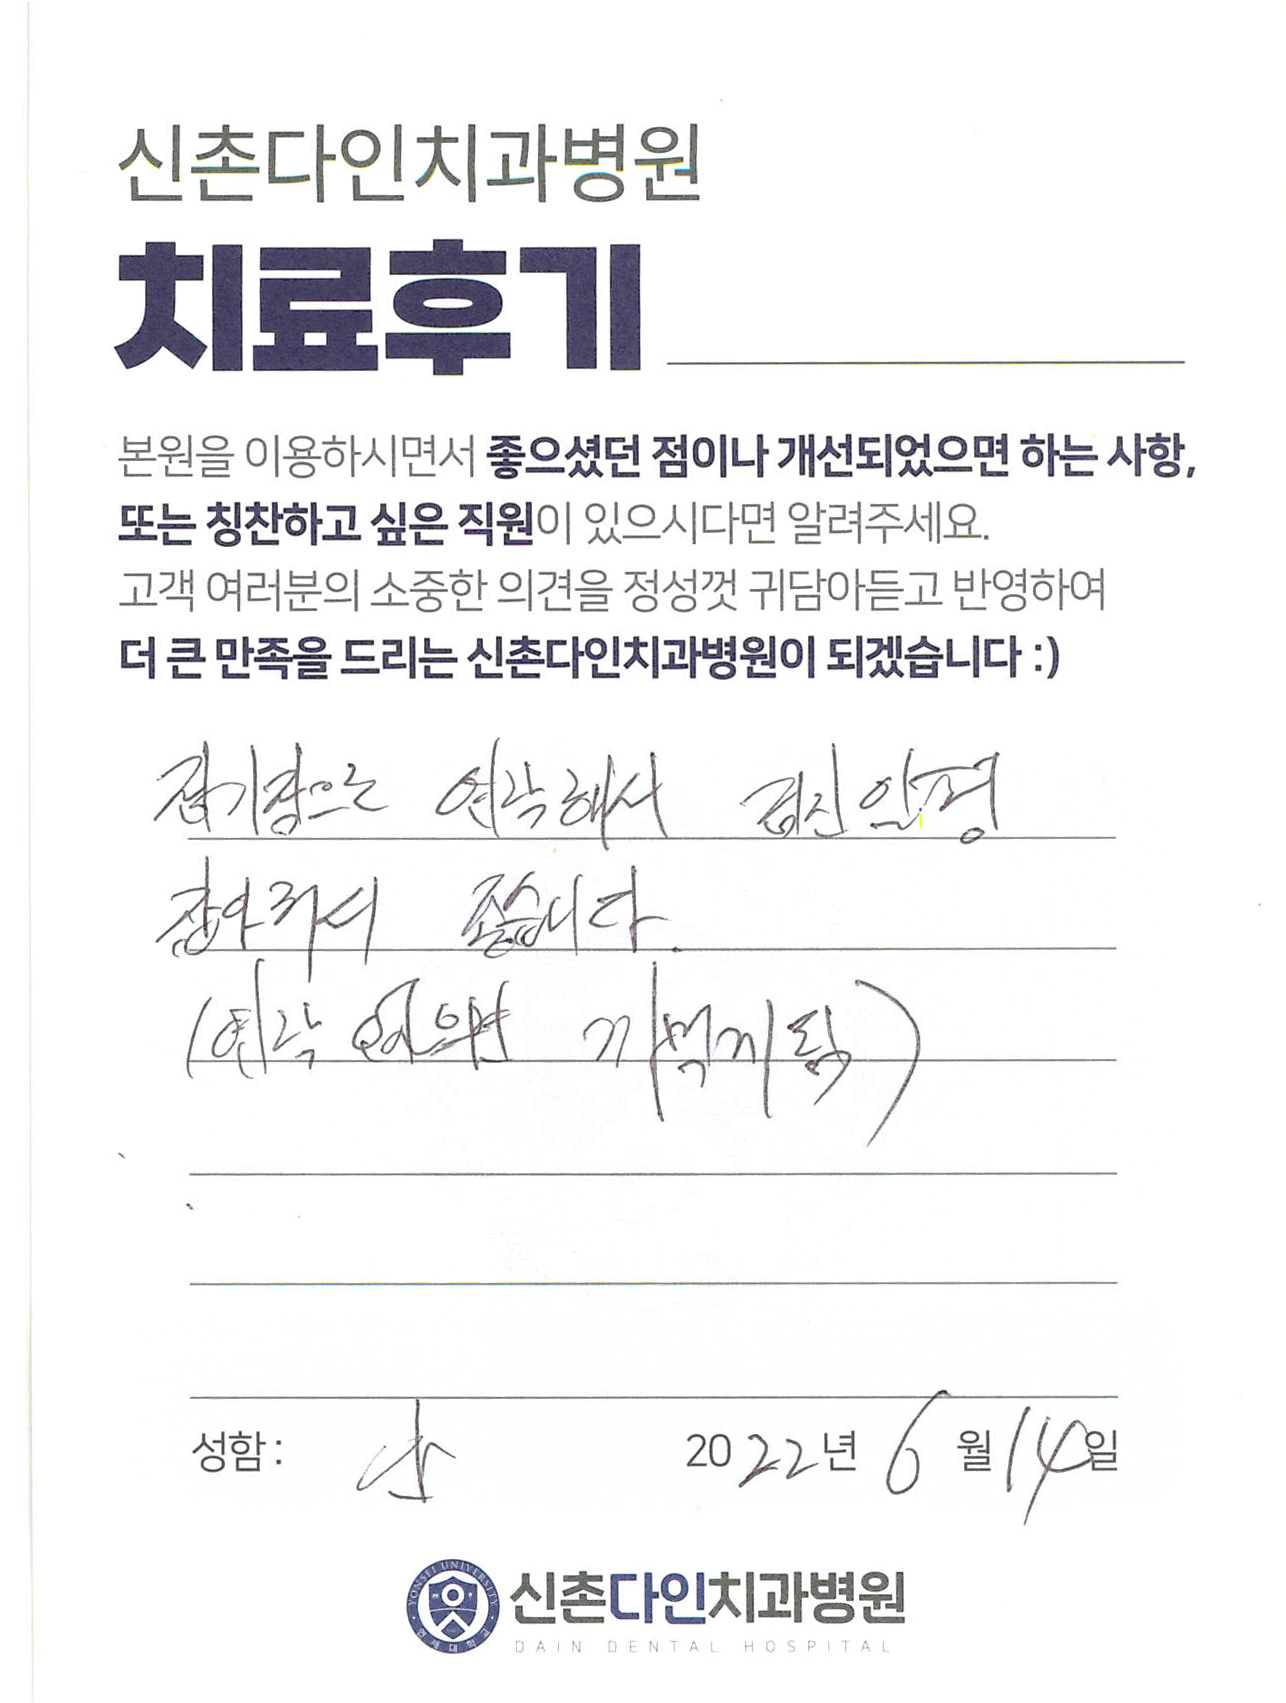 신촌다인치과병원
치료후기
본원을 이용하시면서 좋으셨던 점이나 개선되었으면 하는 사항,
또는 칭찬하고 싶은 직원이 있으시다면 알려주세요.
고객 여러분의 소중한 의견을 정성껏 귀담아듣고 반영하여
더 큰 만족을 드리는 신촌다인치과병원이 되겠습니다 :)
정기적으로 연락해서 검진 일정
잡아줘서 좋습니다.
(연락 없으면 까먹게 됨)
성함 : 2022년 6월 14일
YONSEI UNIVERSITY
연세대학교
신촌다인치과병원
DAIN DENTAL HOSPITAL